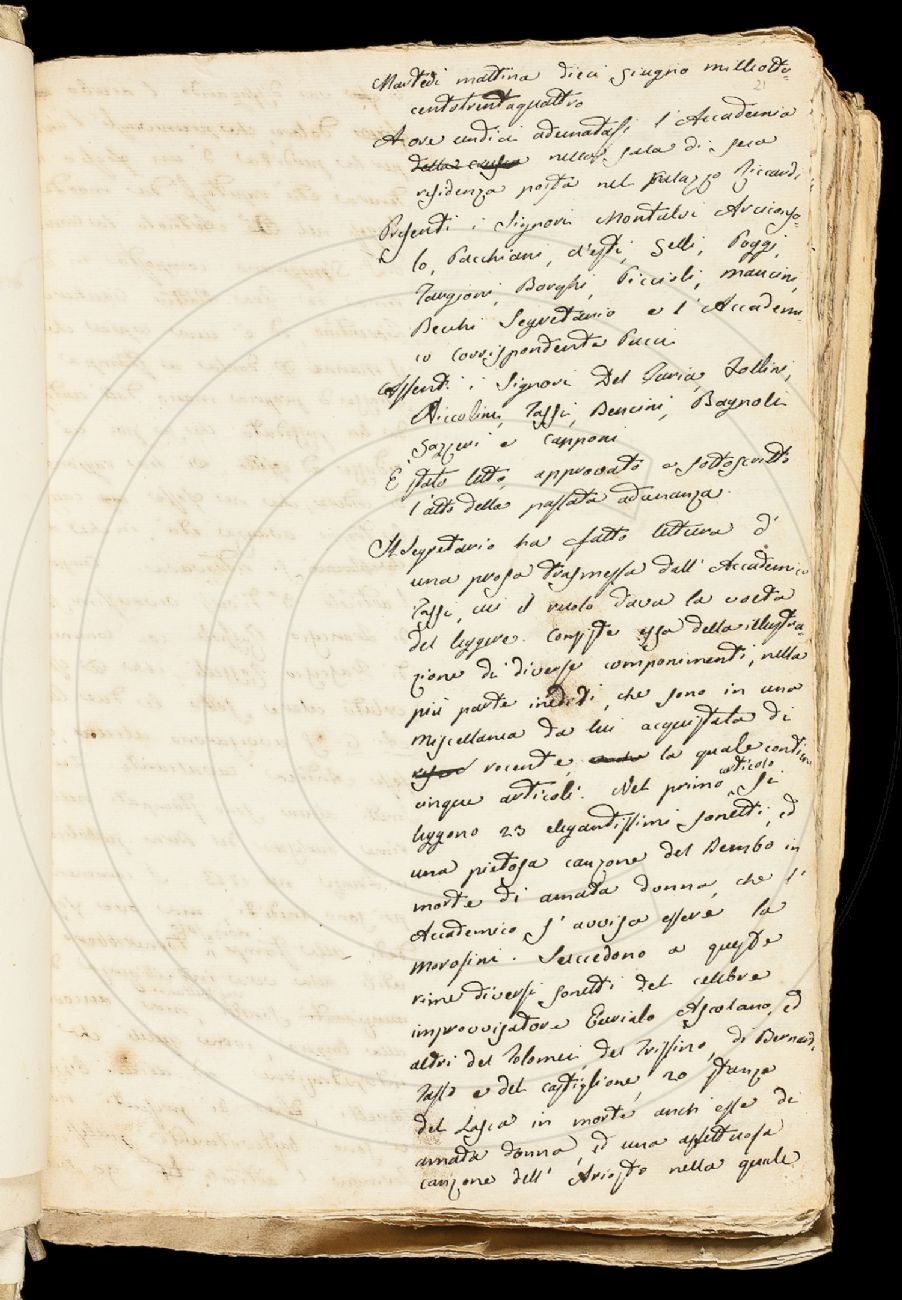 Martedì mattina dieci Giugno milleotto-
centotrentaquattro
21
A ore undici adunatasi l'Accademia
della Crusca nella sala di sua
residenza posta nel Palazzo Riccardi
Presenti i Signori Montalvi Arciconso-
lo, Pacchiani, d'Esti, Gelli, Poggi,
Targioni, Borghi, Piccioli, Mancini,
Becchi Segretario e l'Accademi-
co corrispondente Pucci
Assenti i Signori Del Furia, Zollini,
Niccolini, Tassi, Bencini, Bagnoli
Sazzeri e Capponi
È stato letto, approvato e sottoscritto
l'atto della passata adunanza.
Il Segretario ha fatto lettura d'
una prosa trasmessa dall'Accademico
Tassi, cui il ruolo dava la volta
del leggere. Consiste essa della illustra-
zione di diverse componimenti, nella
più parte inediti, che sono in una
Miscellanea da lui acquistata di
recente, la quale contiene
cinque articoli. Nel primo articolo si
leggono 23 elegantissimi sonetti, ed
una pietosa canzone del Bembo in
morte di amata donna, che l'
Accademico s'avvisa essere la
Morosini. Succedono a queste
rime diversi sonetti del celebre
improvvisatore Eurialo Ascolano, ed
altri del Tolomei, del Trissino, di Bernard.
Tasso e del Castiglione, 20 stanze
del Lasca in morte anch'esse di
amata donna, ed una affettuosa
canzone dell'Ariosto nella quale